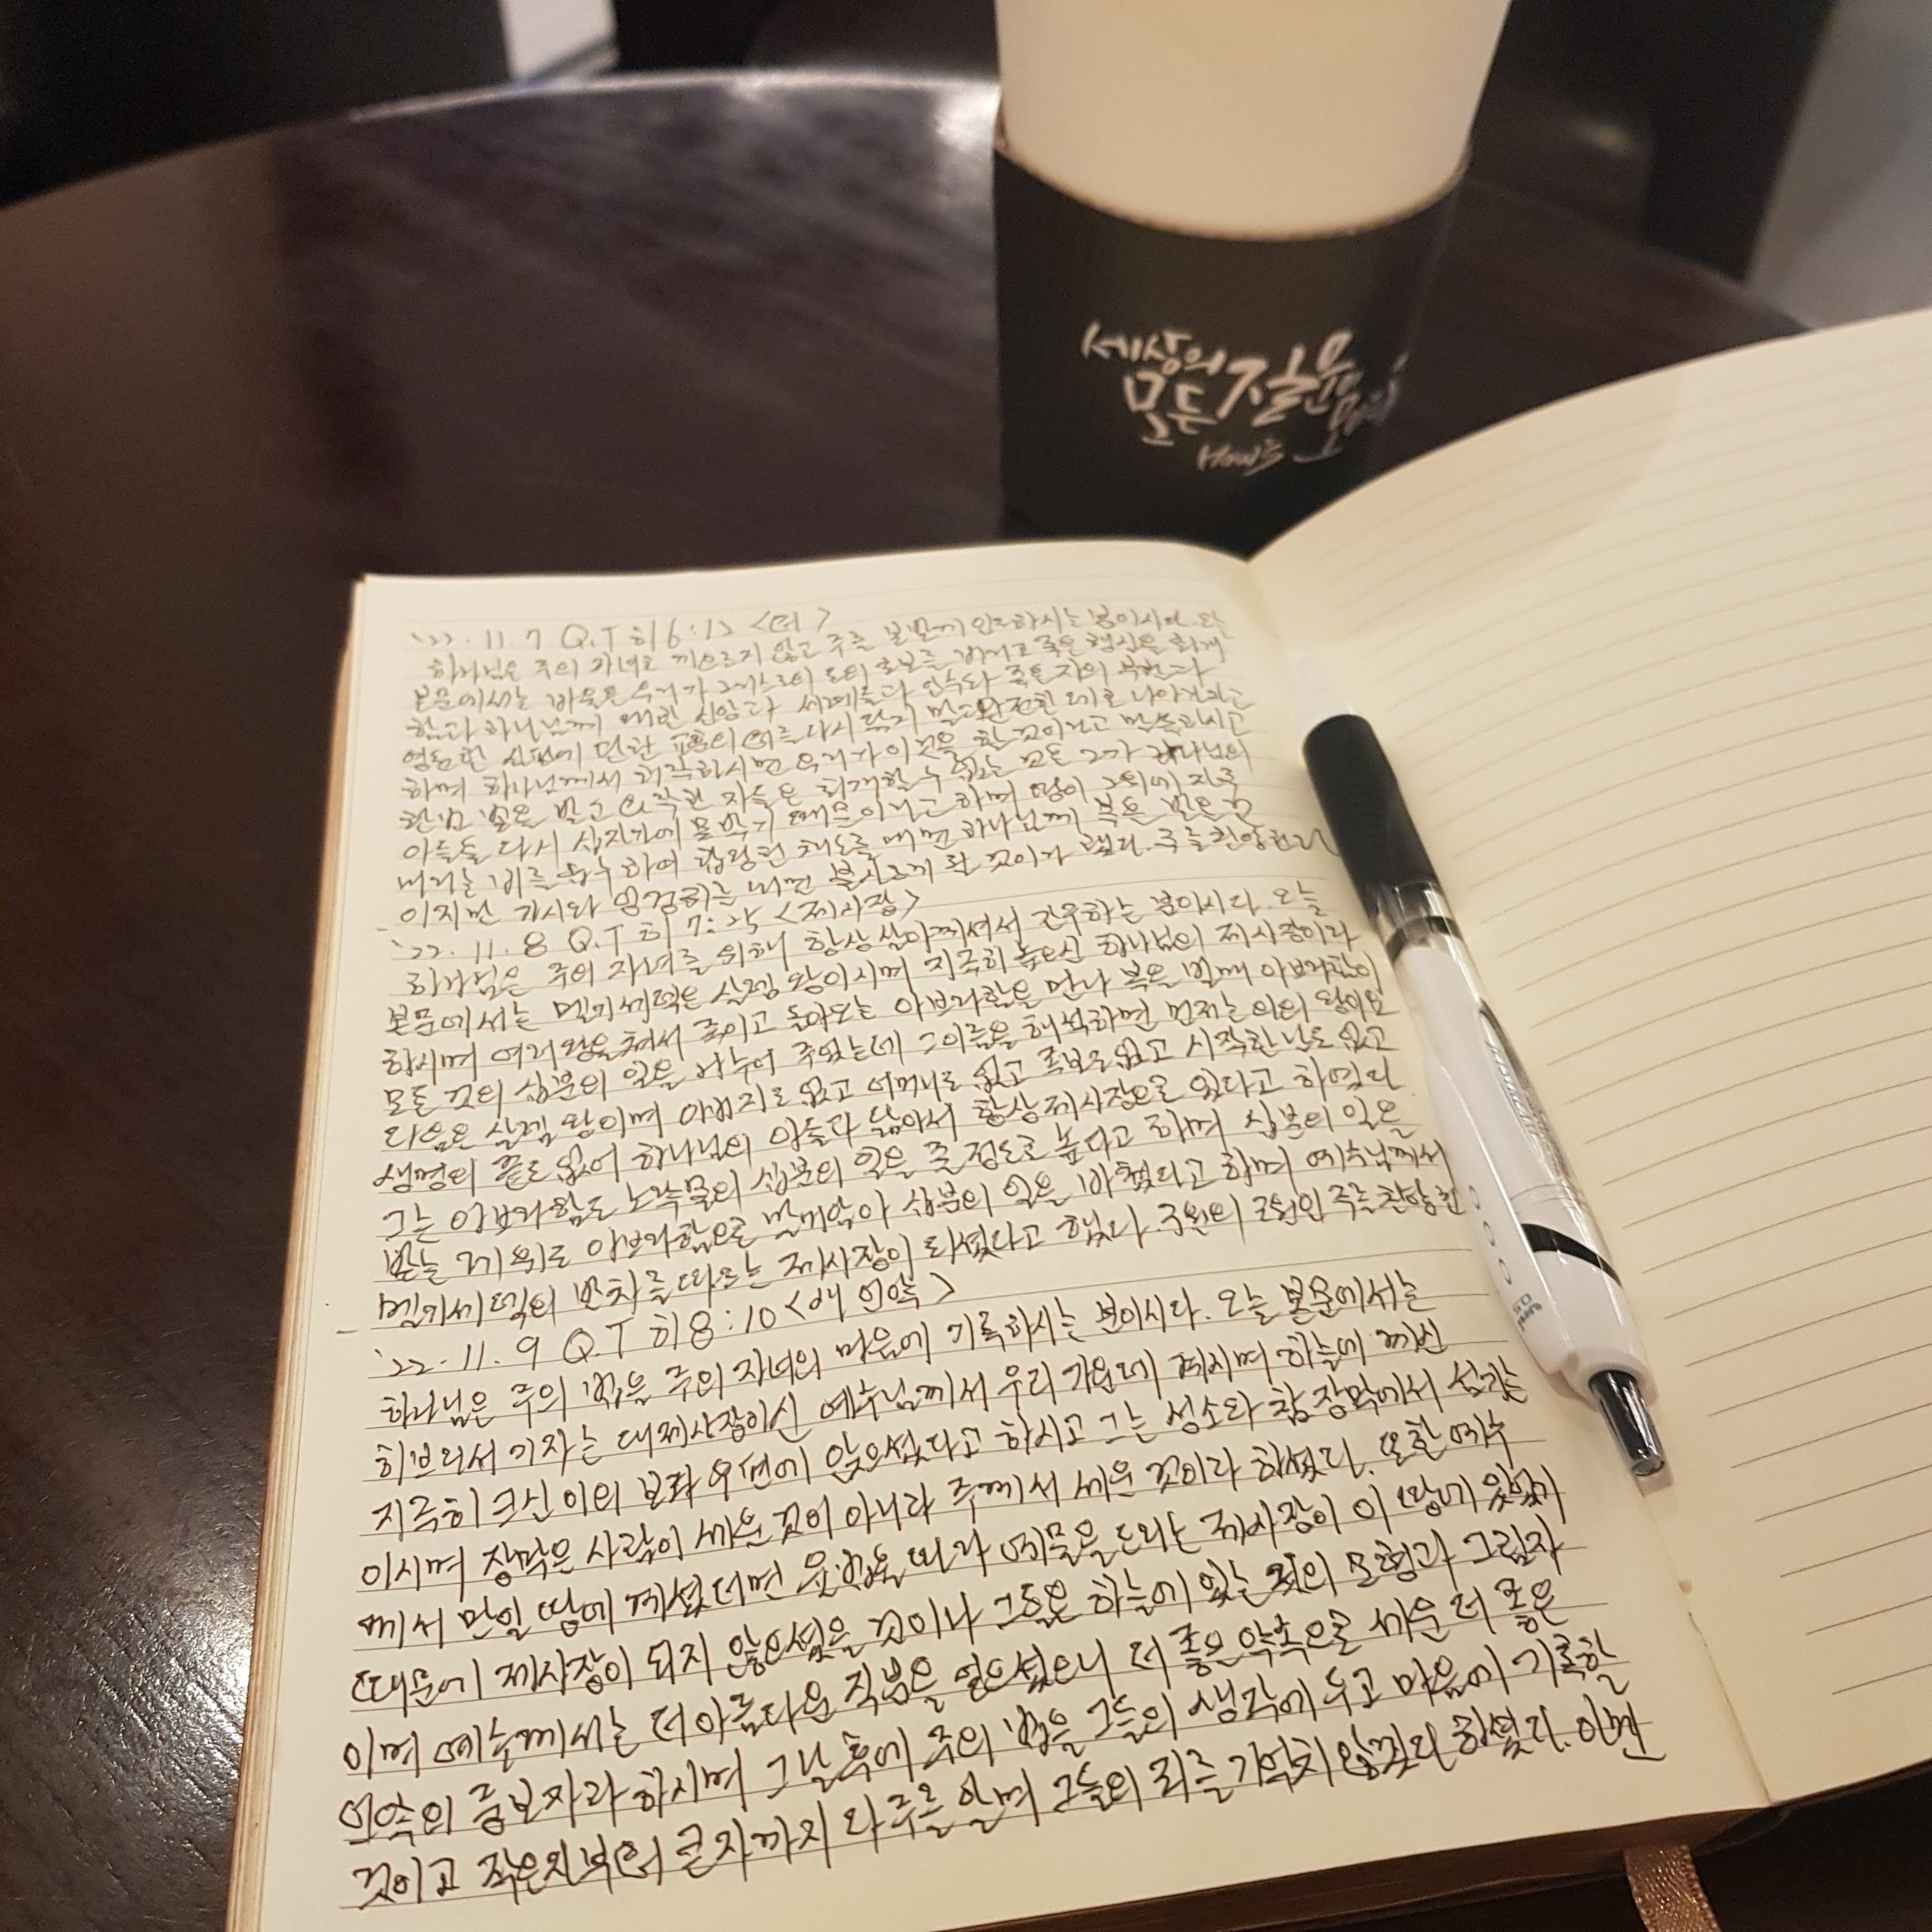 세상의
모든 질문
How are
'22. 11. 7 Q.T 히 6:12 <떠>
하나님은 주의 자녀로 게으르지 않고 주를 본받게 인도하시는 분이시다. 오늘
본문에서는 바울은 우리가 그리스도의 도의 초보를 버리고 죽은 행실을 회개
함과 하나님께 대한 신앙과 세례들과 안수와 죽은 자의 부활과
영원한 심판에 관한 교훈의 터를 다시 닦지 말고 완전한 데로 나아가라고
하며 하나님께서 허락하시면 우리가 이것을 할 것이라고 말씀하시고
한번 빛을 받고 타락한 자들은 회개할 수 없는 것은 그가 하나님의
아들을 다시 십자가에 못박기 때문이라고 하며 땅이 그 위에 자주
내리는 비를 흡수하여 합당한 채소를 내면 하나님께 복을 받을 것
이지만 가시와 엉겅퀴를 내면 불사르게 될 것이라 했다. 주를 찬양한다
'22. 11. 8 Q.T 히 7:25 <제사장>
하나님은 주의 자녀를 위해 항상 살아계셔서 간구하는 분이시다. 오늘
본문에서는 멜기세덱은 살렘 왕이시며 지극히 높으신 하나님의 제사장이라
하시며 여러 왕을 쳐서 죽이고 돌아오는 아브라함을 만나 복을 빌매 아브라함이
모든 것의 십분의 일을 나누어 주었는데 그 이름을 해석하면 먼저는 의의 왕이요
다음은 살렘 왕이며 아버지도 없고 어머니도 없고 족보도 없고 시작한 날도 없고
생명의 끝도 없어 하나님의 아들과 닮아서 항상 제사장으로 있다고 하였다
그는 아브라함도 노략물의 십분의 일을 줄 정도로 높다고 하며 십분의 일을
받는 레위도 아브라함으로 말미암아 십분의 일을 바쳤다고 하며 예수님께서
멜기세덱의 반차를 따르는 제사장이 되셨다고 했다. 구원의 근원인 주를 찬양한
'22. 11. 9 Q.T 히 8:10 <새 언약>
하나님은 주의 법을 주의 자녀의 마음에 기록하시는 분이시다. 오늘 본문에서는
히브리서 기자는 대제사장이신 예수님께서 우리 가운데 계시며 하늘에 계신
지극히 크신 이의 보좌 우편에 앉으셨다고 하시고 그는 성소와 참 장막에서 섬기는
이시며 장막은 사람이 세운 것이 아니라 주께서 세운 것이라 하셨다. 또한 예수
께서 만일 땅에 계셨더면 율법을 따라 예물을 드리는 제사장이 이 땅에 있었기
때문에 제사장이 되지 않으셨을 것이나 그들은 하늘에 있는 것의 모형과 그림자
이며 예수께서는 더 아름다운 직분을 얻으셨으니 더 좋은 약속으로 세운 더 좋은
언약의 중보자라 하시며 그날 후에 주의 법을 그들의 생각에 두고 마음에 기록할
것이고 작은 자부터 큰 자까지 다 주를 알며 그들의 죄를 기억치 않겠다 하셨다. 이번
uni
0.5